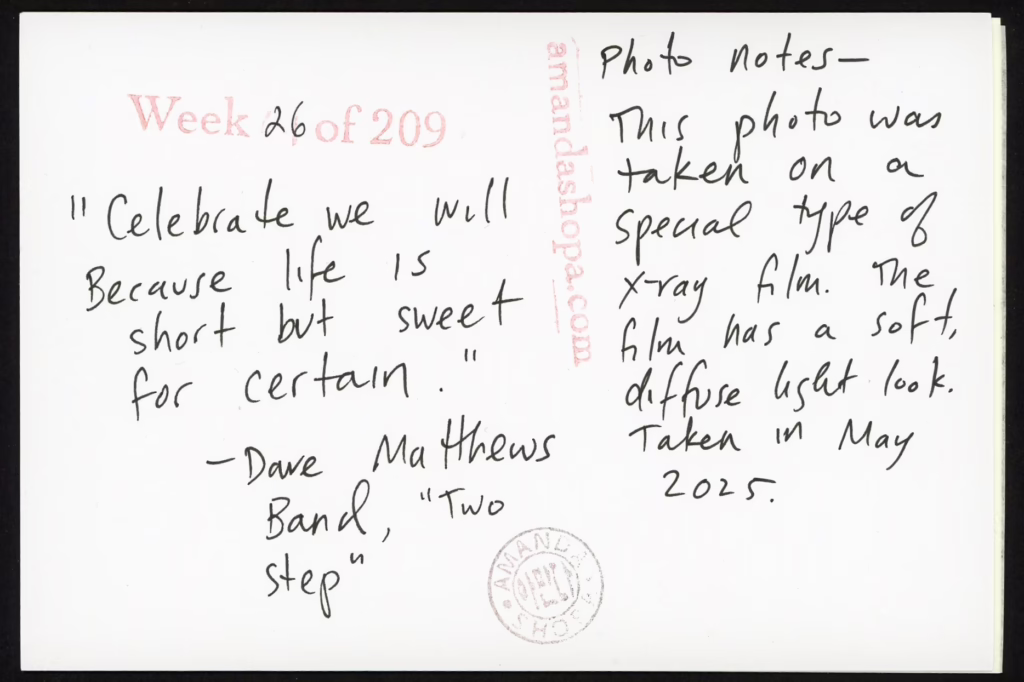 Week 26 of 209
"Celebrate we will
Because life is
short but sweet
for certain."
—Dave Matthews
Band, "Two
step"
amandashopa.com
Photo notes—
This photo was
taken on a
special type of
x-ray film. The
film has a soft,
diffuse light look.
Taken in May
2025.
AMANDA